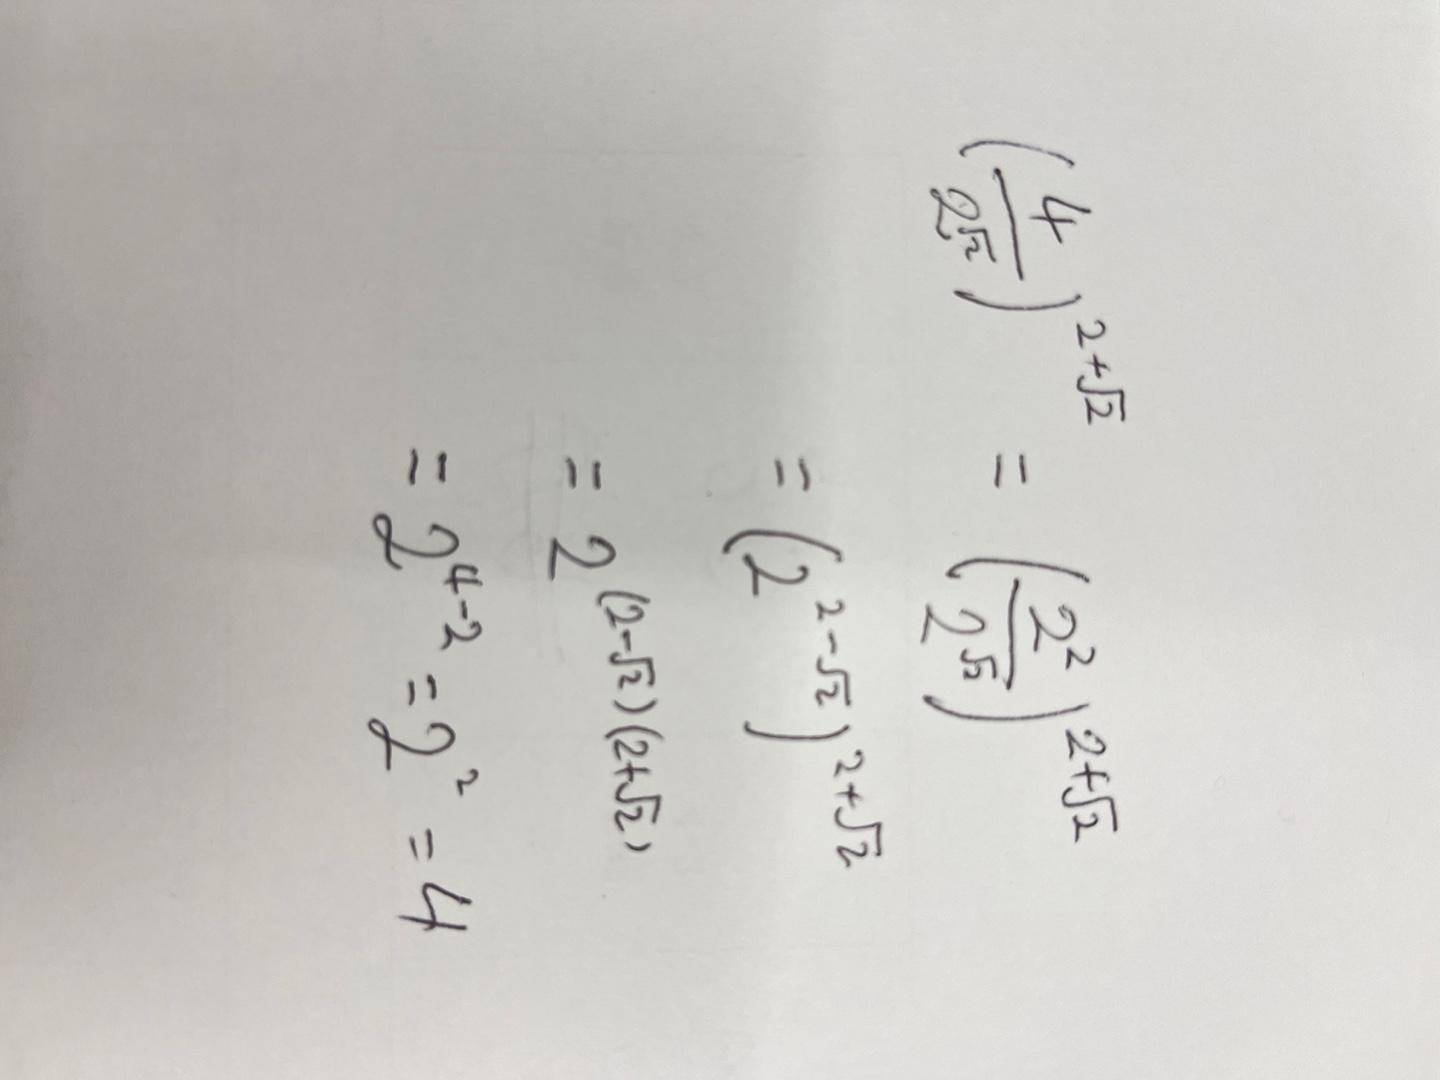 (4/2^√2)^(2+√2) = (2²/2^√2)^(2+√2)
= (2^(2-√2))^(2+√2)
= 2^((2-√2)(2+√2))
= 2^(4-2) = 2² = 4